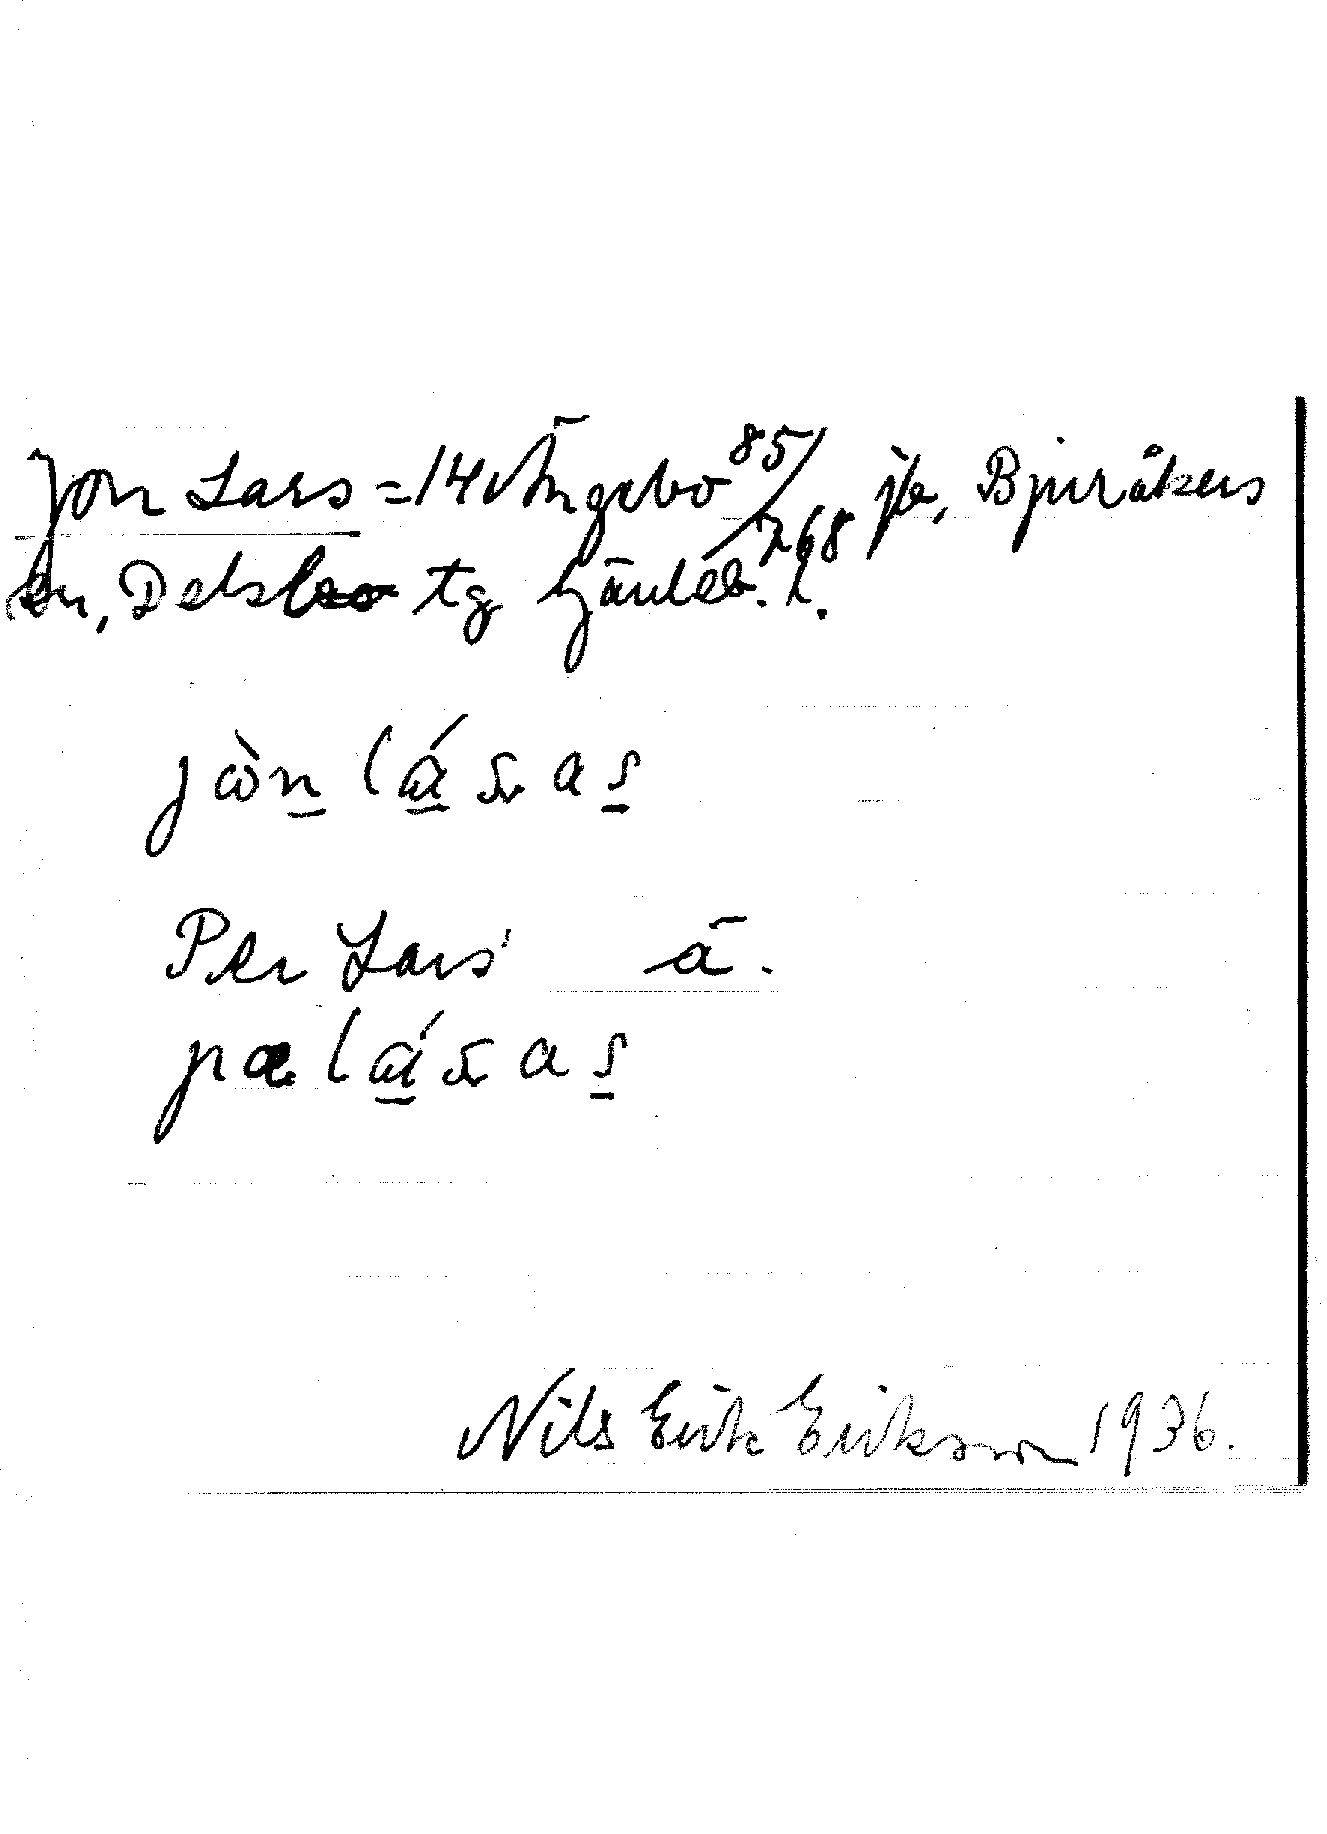 Jon Lars = 14 Ängebo 85/768 jb, Bjuråkers
sn, Delsbo tg Gävleb. l.
jòn lásas
Per Lars' ä.
pælásas
Nils Erik Eriksson 1936.